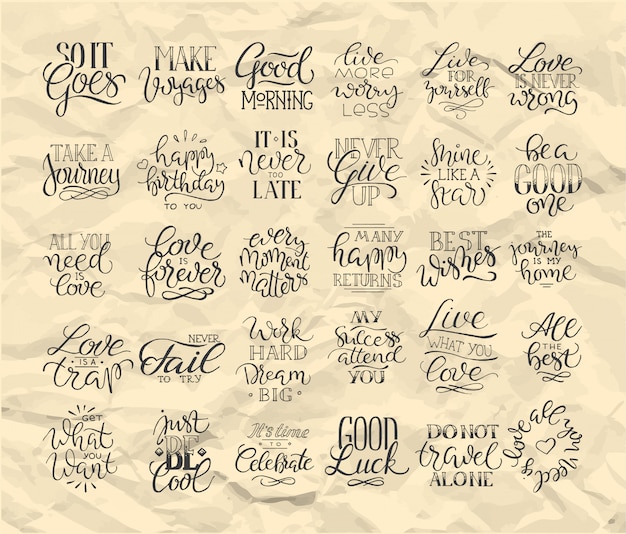 SO IT
Goes
MAKE
Voyages
Good
MORNING
live
MORE
worry
LESS
Live
FOR
yourself
Love
IS NEVER
wrong
TAKE A
Journey
happy
birthday
TO YOU
IT IS
never
TOO
LATE
NEVER
Give
UP
Shine
LIKE A
Star
be a
GOOD
one
ALL YOU
need
is
love
Love
IS
forever
every
moment
matters
MANY
happy
RETURNS
BEST
Wishes
THE
journey
IS MY
home
Love
IS A
trap
NEVER
Fail
TO TRY
Work
HARD
Dream
BIG
MY
Success
attend
YOU
Live
WHAT YOU
love
All
THE
best
GET
What
YOU
Want
just
BE
Cool
It's time
TO
Celebrate
GOOD
Luck
DO NOT
travel
ALONE
all you need is love